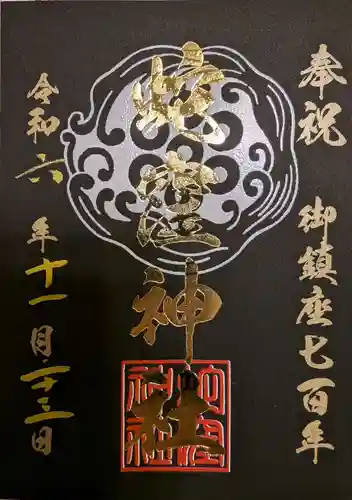 奉祝　御鎮座七百年
蛇窪神社
令和六年十一月二十三日